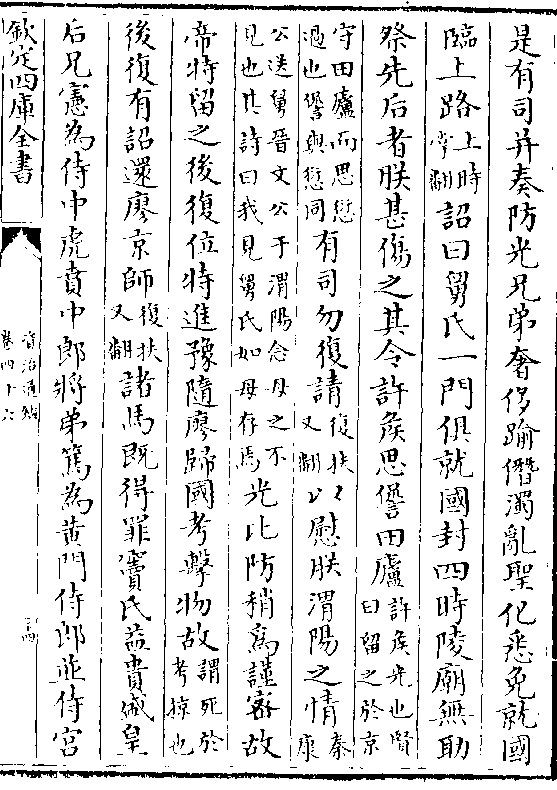 是有司并奏防光兄弟奢侈踰僭濁亂聖化悉免就國
臨上路上時掌翻詔曰舅氏一門俱就國封四時陵廟無助
祭先后者朕甚傷之其令許侯思𠎝田廬許侯光也賢曰留之於京
守田廬而思愆過也𠎝與愆同有司勿復請復扶又翻以慰朕渭陽之情秦康
公送舅晉文公于渭陽念母之不見也其詩曰我見舅氏如母存焉光比防稍為謹密故
帝特留之後復位特進豫隨廖歸國考擊物故謂死於考掠也
後復有詔還廖京師復扶又翻諸馬既得罪竇氏益貴盛皇
后兄憲為侍中虎賁中郎將弟篤為黃門侍郎並侍宮
欽定四庫全書
資治通鑑
卷四十六